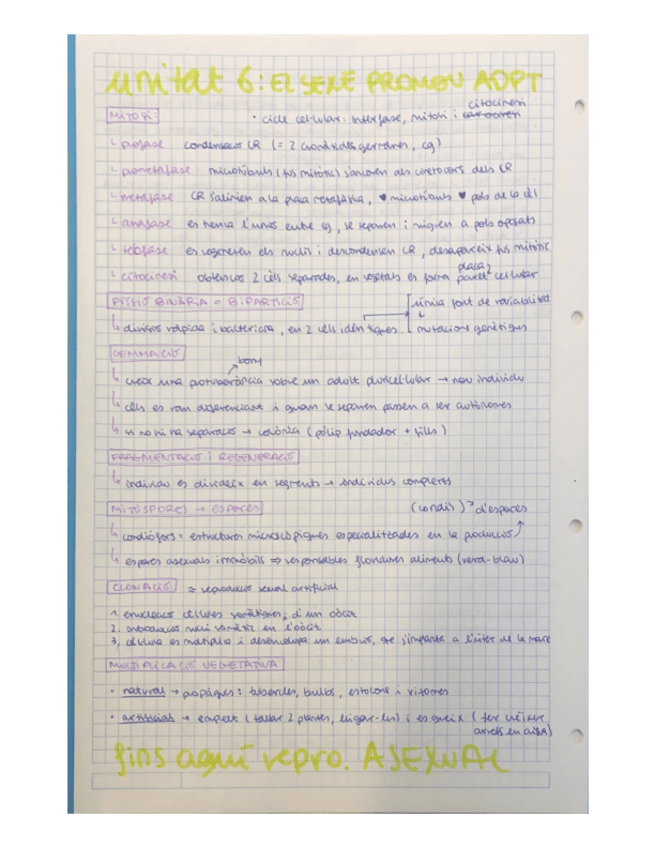 unitat 6: EL SEXE PROMOU ADPT
MITOSI: · cicle cel·lular: interfase, mitosi i citocinesi
└ profase condensació CR (= 2 cromàtides germanes, cg)
└ prometafase microtúbuls (fus mitòtic) s'ancoren als centròmers dels CR
└ metafase CR s'alinien a la placa metafàsica, ♥ microtúbuls ♥ pols de la cèl
└ anafase es trenca l'unió entre cg, se separen i migren a pols oposats
└ telofase es regeneren els nuclis i descondensen CR, desapareix fus mitòtic
└ citocinesi obtenim 2 cèls separades, en vegetals es forma placa/paret cel·lular
FISSIÓ BINÀRIA o BIPARTICIÓ
única font de variabilitat
↳ divisió ràpida i bacteriana, en 2 cèls idèntiques. mutacions genètiques
GEMMACIÓ
bony
↳ creix una protuberància sobre un adult pluricel·lular → nou individu
↳ cèls es van diferenciant i quan se separen passen a ser autònomes
↳ si no hi ha separació → colònia (pòlip fundador + fills)
FRAGMENTACIÓ i REGENERACIÓ
↳ individu es divideix en segments → individus complerts
MITÒSPORES → ESPORES (conidis) d'espores
↳ conidiòfors = estructures microscòpiques especialitzades en la producció
↳ espores asexuals immòbils ⇒ responsables floridures aliments (verd-blau)
CLONACIÓ = reproducció sexual artificial
1. enucleació cèl·lules somàtiques, d'un oòcit
2. introducció nucli somàtic en l'oòcit
3. cèl·lula es multiplica i desenvolupa un embrió, que s'implanta a l'úter de la mare
MULTIPLICACIÓ VEGETATIVA
· natural → propàguls: tubercles, bulbs, estolons i rizomes
· artificial → empelt (tallar 2 plantes, lligar-les) i esqueix (fer créixer
arrels en aigua)
fins aquí repro. ASEXUAL